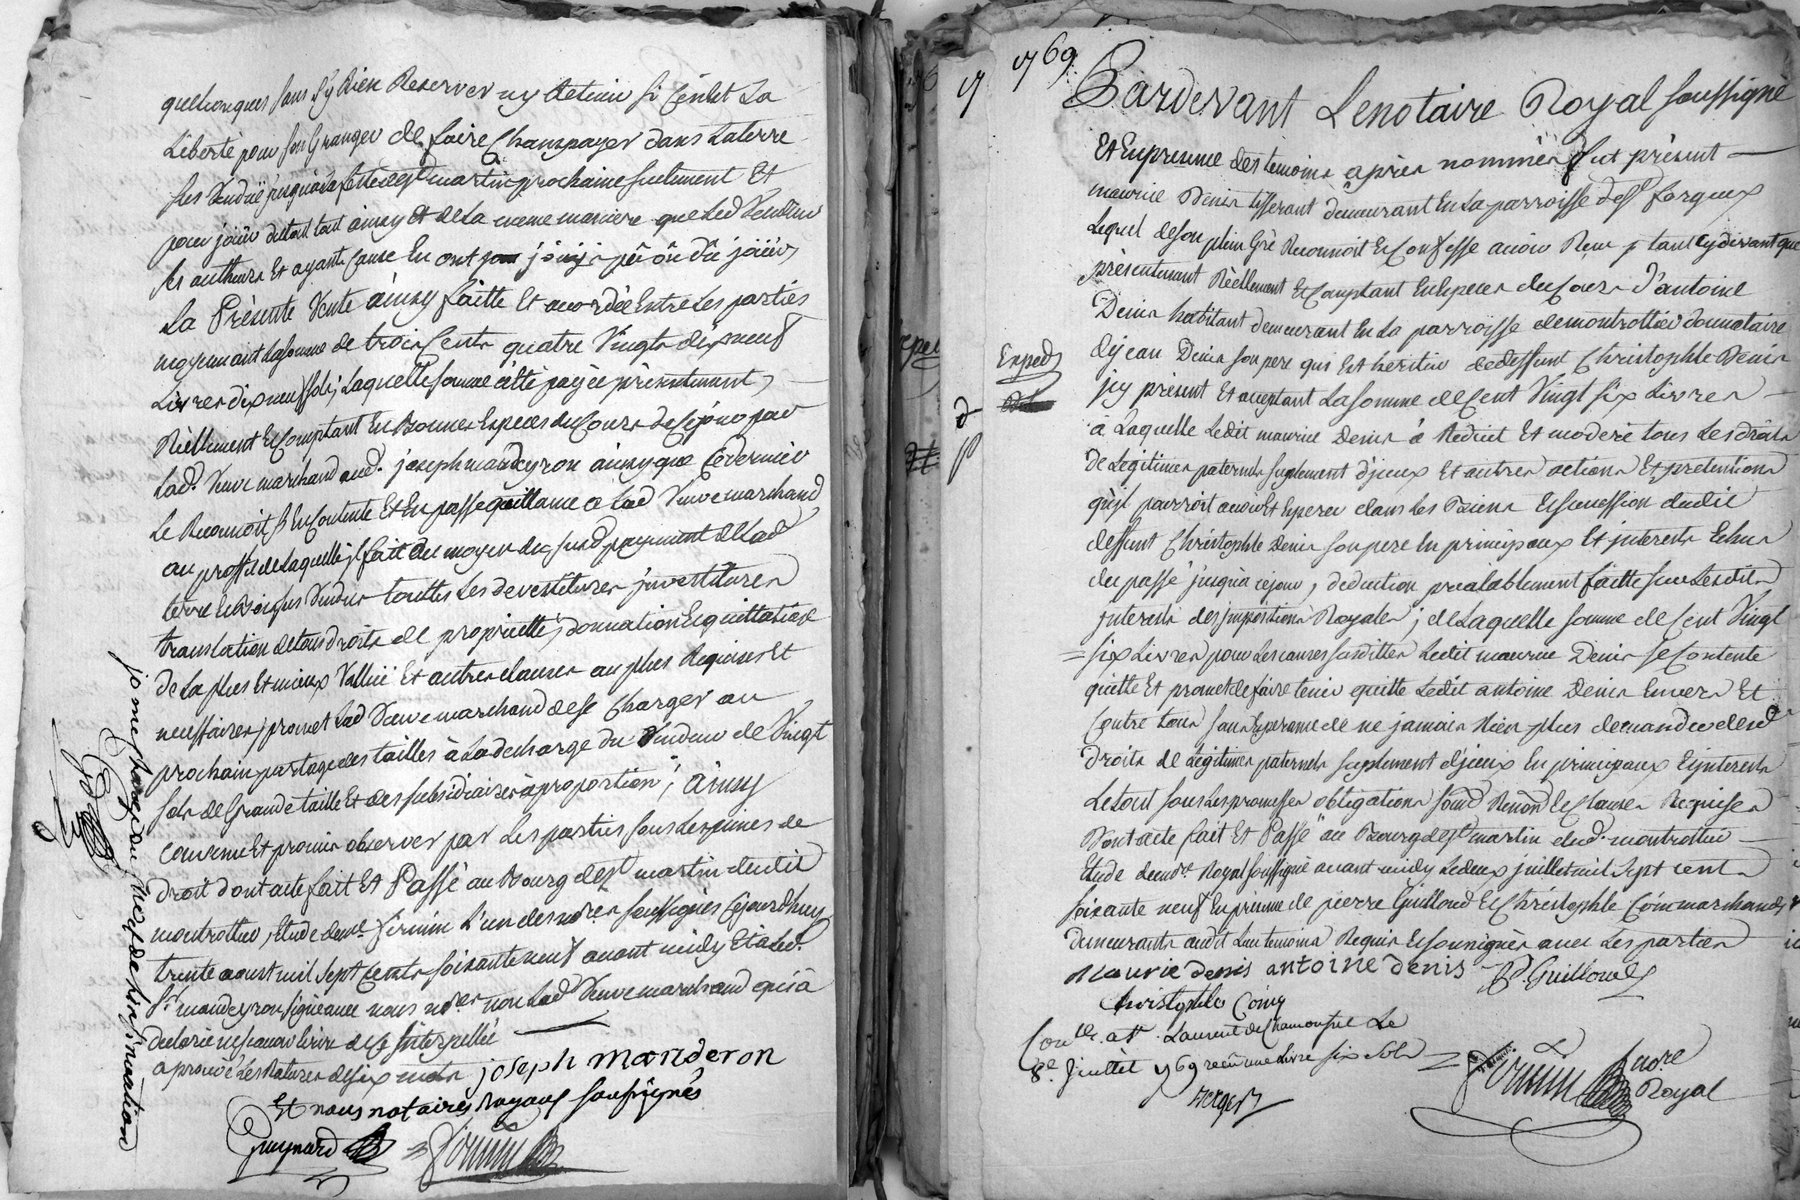 quelconques sans s'y Rien Reserver ny Retenir si ce n'est La
Liberté pour son Granger de faire Champayer dans Laterre
jusqu'a la fette de st martin prochaine seulement Et
pour joüir du tout tout ainsy Et de La meme maniere que Led Vendeur
ses autheurs Et ayants Cause En ont joüy pû ou dû joüir,
La Présente Vente ainsy faitte Et accordée Entre Les parties
moyennant La somme de trois Cents quatre Vingts dix neuf
Livres dix neuf sols, Laquelle somme a été payée présentement,
Réellement Et Comptant En Bonnes Especes du Cours de Ce jour par
Lad. Veuve marchand aud. joseph mandeyron ainsy que Ce dernier
Le Reconnoit s'En Contente Et En passe quittance a Lad Veuve marchand
au proffit de Laquelle il fait au moyen du susd payement de Lad
terre Et Bois sus Vendus touttes Les devestitures investitures
translation de tous droits de proprietté, donnation Et quittation
de La plus Et mieux Vallüe Et autres clauses au plus Requises Et
necessaires, promet Lad Veuve marchand de se Charger au
prochain partage des tailles à La decharge du Vendeur de Vingt
sols de Grande taille Et des subsidiaires à proportion; Ainsy
convenu Et promis observer par Les parties sous Les peines de
droit dont acte fait Et Passé au Bourg de st martin dudit
montrottier, Etude de me firmin L'un des notres soussignés Cejourdhuy
trente aoust mil sept Cents soixante neuf avant midy Et a Led.
Sr mandeyron signé avec nous nores non Lad Veuve marchand qui a
declaré ne scavoir Ecrire de ce Interpellée
approuvé Les Ratures de six mots joseph Manderon
Et nous notaires Royaux soussignés
Guynard firmin
je me charge du fies de l'insinuation
1769
Pardevant Le notaire Royal soussigné
Et En presence des temoins après nommés fut présent
maurice Denis tisserant demeurant En La parroisse de st forgeux
Lequel de son plein Gré Reconnoit Et Confesse avoir Reçu tant cy devant que
présentement Réellement Et Comptant En Especes du Cours d'antoine
Denis habitant demeurant En La parroisse de montrottier donnataire
de jean Denis son pere qui Est heritier de deffunt Christophle Denis
Exped
icy présent Et acceptant La somme de Cent Vingt six Livres
a Laquelle Ledit maurice Denis a Reduit Et moderé tous Les droits
de Legitimes paternels suplement d'jceux Et autres actions Et pretentions
qu'jl pourroit avoir Et Esperer dans Les Biens Et succession dudit
deffunt Christophle Denis son pere En principaux Et jnterests Echus
du passé jusqu'a ce jour, deduction prealablement faitte sur Lesdits
jnterests des jmpositions Royales; de Laquelle somme de Cent Vingt
six Livres pour Les causes susdittes Ledit maurice Denis se Contente
quitte Et promet de faire tenir quitte Ledit antoine Denis Envers Et
Contre tous sans Esperance de ne jamais Rien plus demander desd
droits de Legitimes paternels suplement d'jceux En principaux Et jnterests
Le tout sous Les promesses obligations soumd Renond Et Clauses Requises
Dont acte fait Et Passé au Bourg de st martin dud. montrottier
Etude du nore Royal soussigné avant midy Le deux juillet mil sept cents
soixante neuf En presence de pierre Guilloud Et Christophle Cóin marchands
demeurants audit Lieu temoins Requis Et soussignés avec Les parties
Maurie denis antoine denis P. Guilloud
Christophle Cóing
Conlle. a st. Laurent de Chamousset Le
8e. Juillet 1769 reçu une Livre six sols
firmin nore
Royal